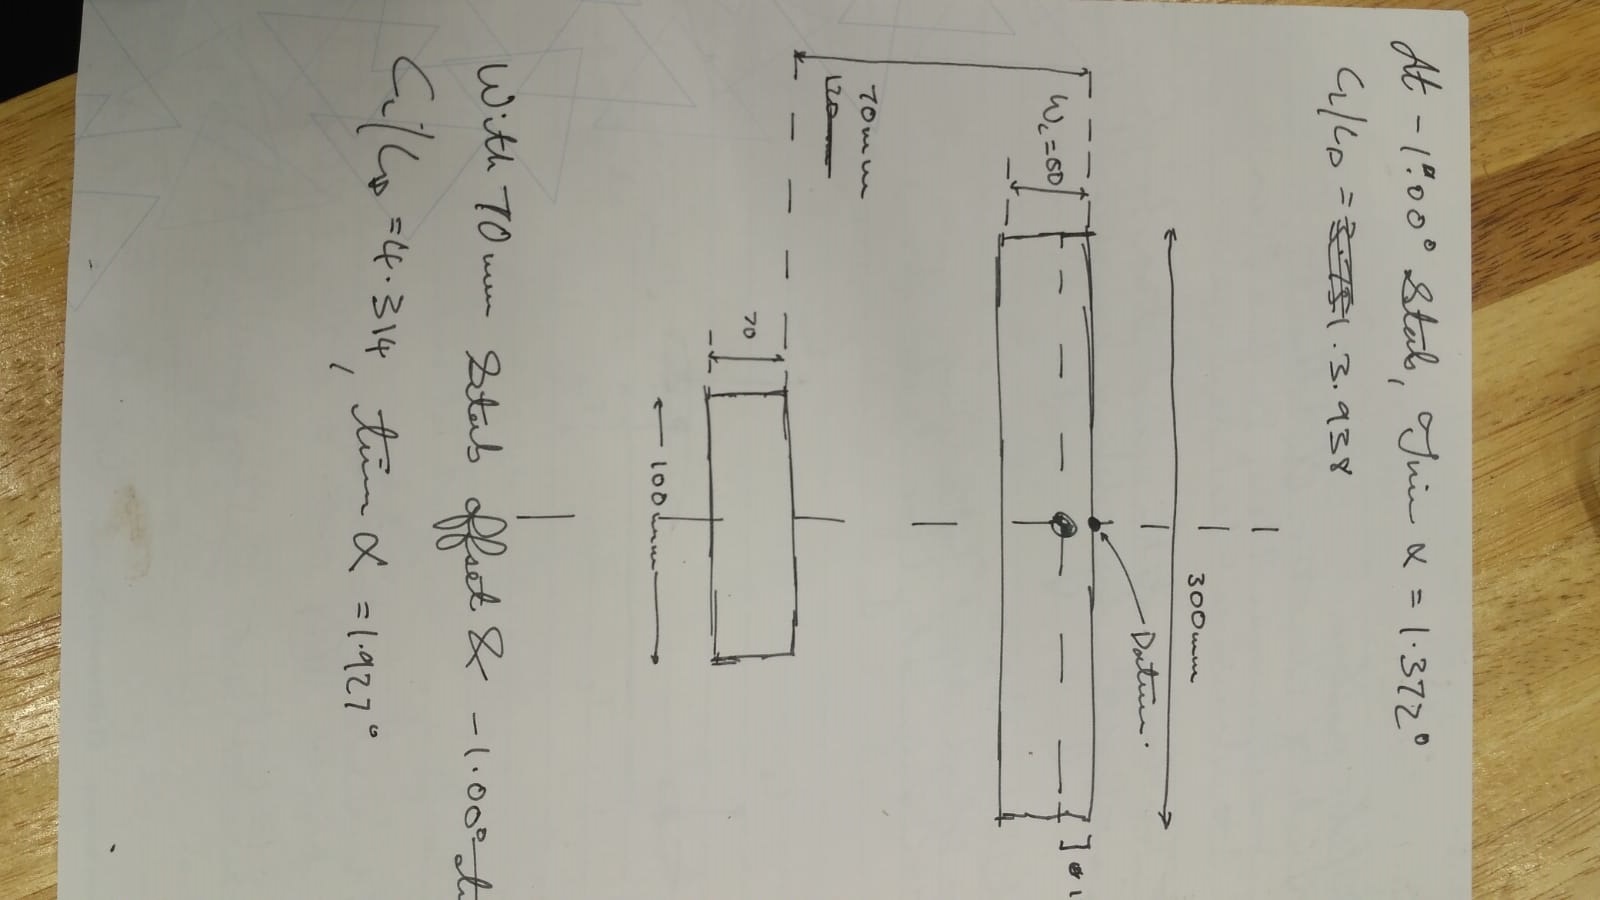 At -1.00° Stab, Trim α = 1.372°
CL/CD = 3.938
300mm
Datum.
Wc=60
70mm
120
70
100mm
With 70mm Stab offset & -1.00°
CL/CD =4.314, trim α =1.927°